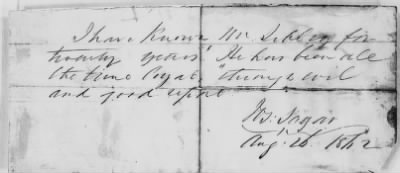 I have known Mr. Sibley for
twenty years. He has been all
the time loyal, "through evil
and good report"
Aug: 26. 1862